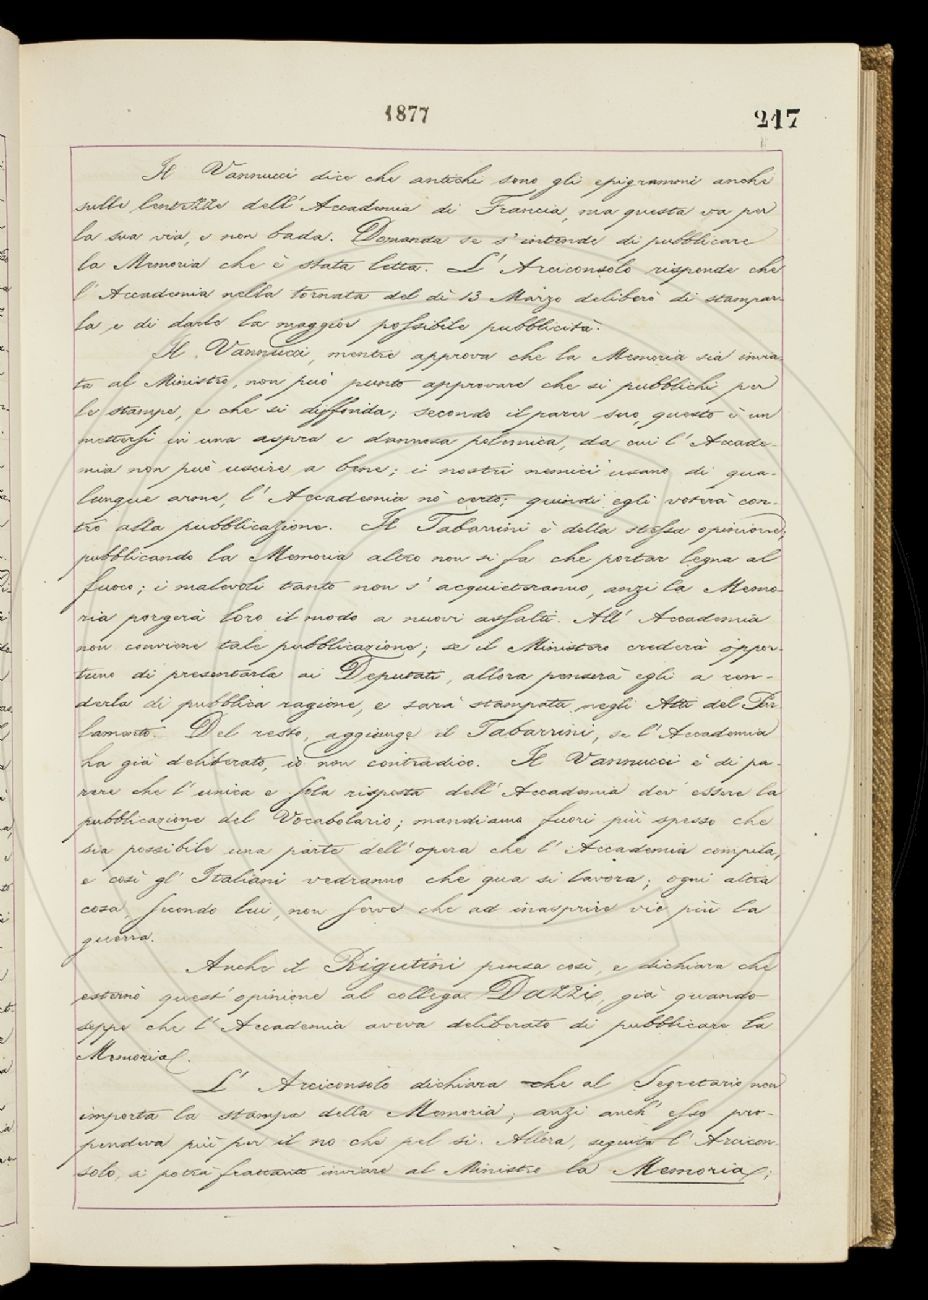 1877
217
Il Vannucci dice che antichi sono gli epigrammi anche
sulle lentezze dell'Accademia di Francia, ma questa va per
la sua via, e non bada. Domanda se s'intende di pubblicare
la Memoria che è stata letta. L'Arciconsolo risponde che
l'Accademia nella tornata del dì 13 Marzo deliberò di stampar-
la e di darle la maggior possibile pubblicità.
Il Vannucci, mentre approva che la Memoria sia invia-
ta al Ministro, non può punto approvare che si pubblichi per
le stampe, e che si diffonda; secondo il parer suo, questo è un
mettersi in una aspra e dannosa polemica, da cui l'Accade-
mia non può uscire a bene; i nostri nemici usano di qua-
lunque arme, l'Accademia nò certo; quindi egli voterà con-
tro alla pubblicazione. Il Tabarrini è della stessa opinione;
pubblicando la Memoria altro non si fa che portar legna al
fuoco; i malevoli tanto non s'acquieteranno, anzi la Memo-
ria porgerà loro il modo a nuovi assalti. All'Accademia
non conviene tale pubblicazione; se il Ministero crederà oppor-
tuno di presentarla ai Deputati, allora penserà egli a ren-
derla di pubblica ragione, e sarà stampata negli Atti del Par-
lamento. Del resto, aggiunge il Tabarrini, se l'Accademia
ha già deliberato, io non contradico. Il Vannucci è di pa-
rere che l'unica e sola risposta dell'Accademia dev'essere la
pubblicazione del Vocabolario; mandiamo fuori più spesso che
sia possibile una parte dell'opera che l'Accademia compila,
e così gl'Italiani vedranno che qua si lavora; ogni altra
cosa, secondo lui, non serve che ad inasprire vie più la
guerra.
Anche il Rigutini pensa così, e dichiara che
esternò quest'opinione al collega Dazzi, già quando
seppe che l'Accademia aveva deliberato di pubblicare la
Memoria.
L'Arciconsolo dichiara che al Segretario non
importa la stampa della Memoria; anzi anch'esso pro-
pendeva più per il no che pel sì. Allora, seguita l'Arcicon-
solo, si potrà frattanto inviare al Ministro la Memoria;